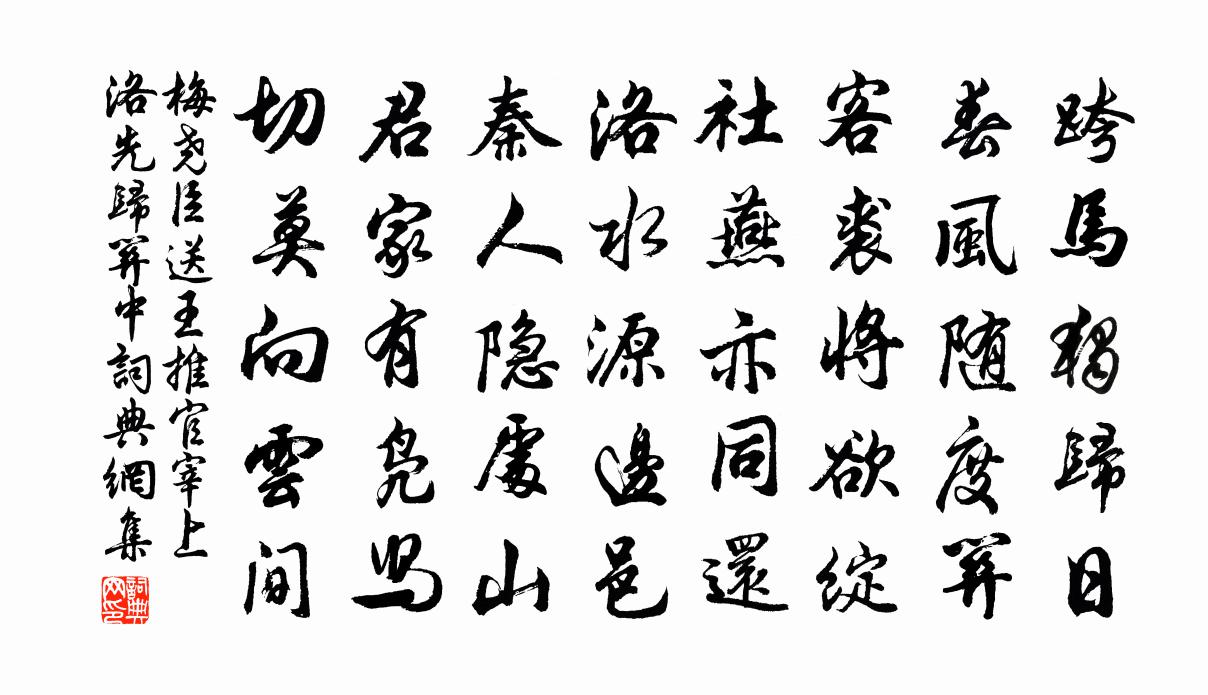 跨馬獨歸日
春風随度關
客裘將欲綻
社燕亦同還
洛水源邊邑
秦人隐處山
君家有凫舄
切莫向雲間
梅尧臣送王推官宰上
洛先歸關中詞典網集
詞典
网印